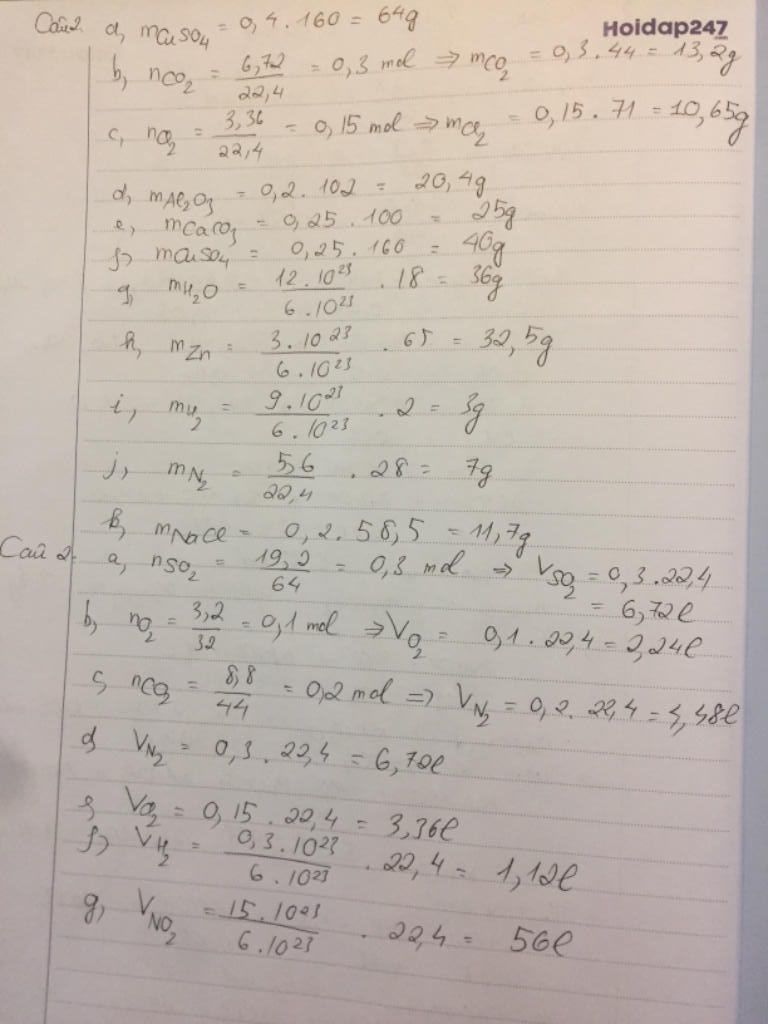 Hoidap247
Câu 2. a, mCuSO4 = 0,4 . 160 = 64g
b, nCO2 = 6,72/22,4 = 0,3 mol ⇒ mCO2 = 0,3 . 44 = 13,2g
c, nCl2 = 3,36/22,4 = 0,15 mol ⇒ mCl2 = 0,15 . 71 = 10,65g
d, mAl2O3 = 0,2 . 102 = 20,4g
e, mCaCO3 = 0,25 . 100 = 25g
f, mCuSO4 = 0,25 . 160 = 40g
g, mH2O = 12 . 10^23/6 . 10^23 . 18 = 36g
h, mZn = 3 . 10^23/6 . 10^23 . 65 = 32,5g
i, mH2 = 9 . 10^23/6 . 10^23 . 2 = 3g
j, mN2 = 5,6/22,4 . 28 = 7g
k, mNaCl = 0,2 . 58,5 = 11,7g
Câu 2. a, nSO2 = 19,2/64 = 0,3 mol ⇒ VSO2 = 0,3 . 22,4
= 6,72l
b, nO2 = 3,2/32 = 0,1 mol ⇒ VO2 = 0,1 . 22,4 = 2,24l
c, nCO2 = 8,8/44 = 0,2 mol ⇒ VN2 = 0,2 . 22,4 = 4,48l
d, VN2 = 0,3 . 22,4 = 6,72l
e, VO2 = 0,15 . 22,4 = 3,36l
f, VH2 = 0,3 . 10^23/6 . 10^23 . 22,4 = 1,12l
g, VNO2 = 15 . 10^23/6 . 10^23 . 22,4 = 56l